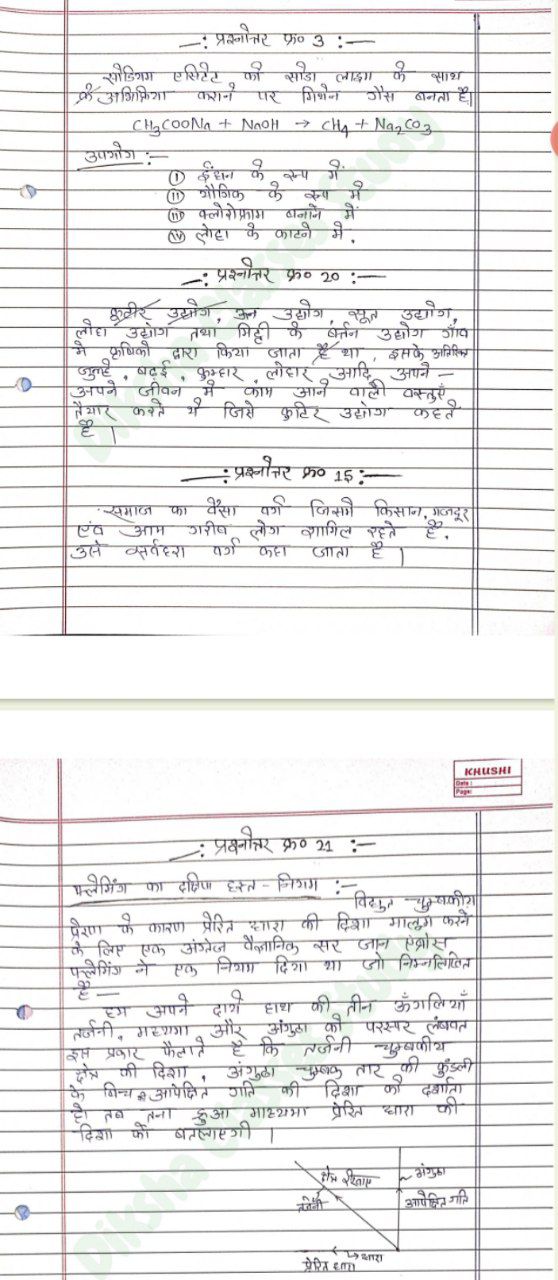 —: प्रश्नोत्तर क्र० 3 :—
सोडियम एसिटेट को सोडा लाइम के साथ
अभिक्रिया कराने पर मिथेन गैस बनता है।
CH3COONa + NaOH → CH4 + Na2CO3
उपयोग :—
(i) ईंधन के रूप में
(ii) यौगिक के रूप में
(iii) क्लोरोफ्राम बनाने में
(iv) लोहा के काटने में.
—: प्रश्नोत्तर क्र० 20 :—
कुटीर उद्योग, ऊन उद्योग, सूत उद्योग,
लोहा उद्योग तथा मिट्टी के बर्त्तन उद्योग गाँव
मे कृषिको द्वारा किया जाता था, इसके अतिरिक्त
जुलाहे, बढ़ई, कुम्हार, लोहार आदि अपने —
अपने जीवन मे काम आने वाली वस्तुएँ
तैयार करते थे जिसे कुटिर उद्योग कहते
है।
—: प्रश्नोत्तर क्र० 15 :—
समाज का वैसा वर्ग जिसमें किसान, मजदूर
एवं आम गरीब लोग शामिल रहते है.
उसे सर्वहारा वर्ग कहा जाता है।
KHUSHI
Date :
Page:
—: प्रश्नोत्तर क्र० 21 :—
फ्लेमिंग का दक्षिण हस्त - नियम :—
विद्युत - चुम्बकीय
प्रेरण के कारण प्रेरित धारा की दिशा मालूम करने
के लिए एक अंग्रेज वैज्ञानिक सर जान एंब्रोस
फ्लेमिंग ने एक नियम दिया था जो निम्नलिखित
है —
हम अपने दाये हाथ की तीन ऊँगलियाँ
तर्जनी, मध्यमा और अंगुठा को परस्पर लंबवत
इस प्रकार फैलाते है कि तर्जनी चुम्बकीय
क्षेत्र की दिशा, अंगुठा चुम्बक तार की कुंडली
के बिच आपेक्षित गति की दिशा को दर्शाता
हो तब तना हुआ माध्यमा प्रेरित धारा की
दिशा को बतलाएगी।
क्षेत्र दिशाए
अंगुठा
तर्जनी
आपेक्षित गति
धारा
प्रेरित धारा
Diksha Classes Study